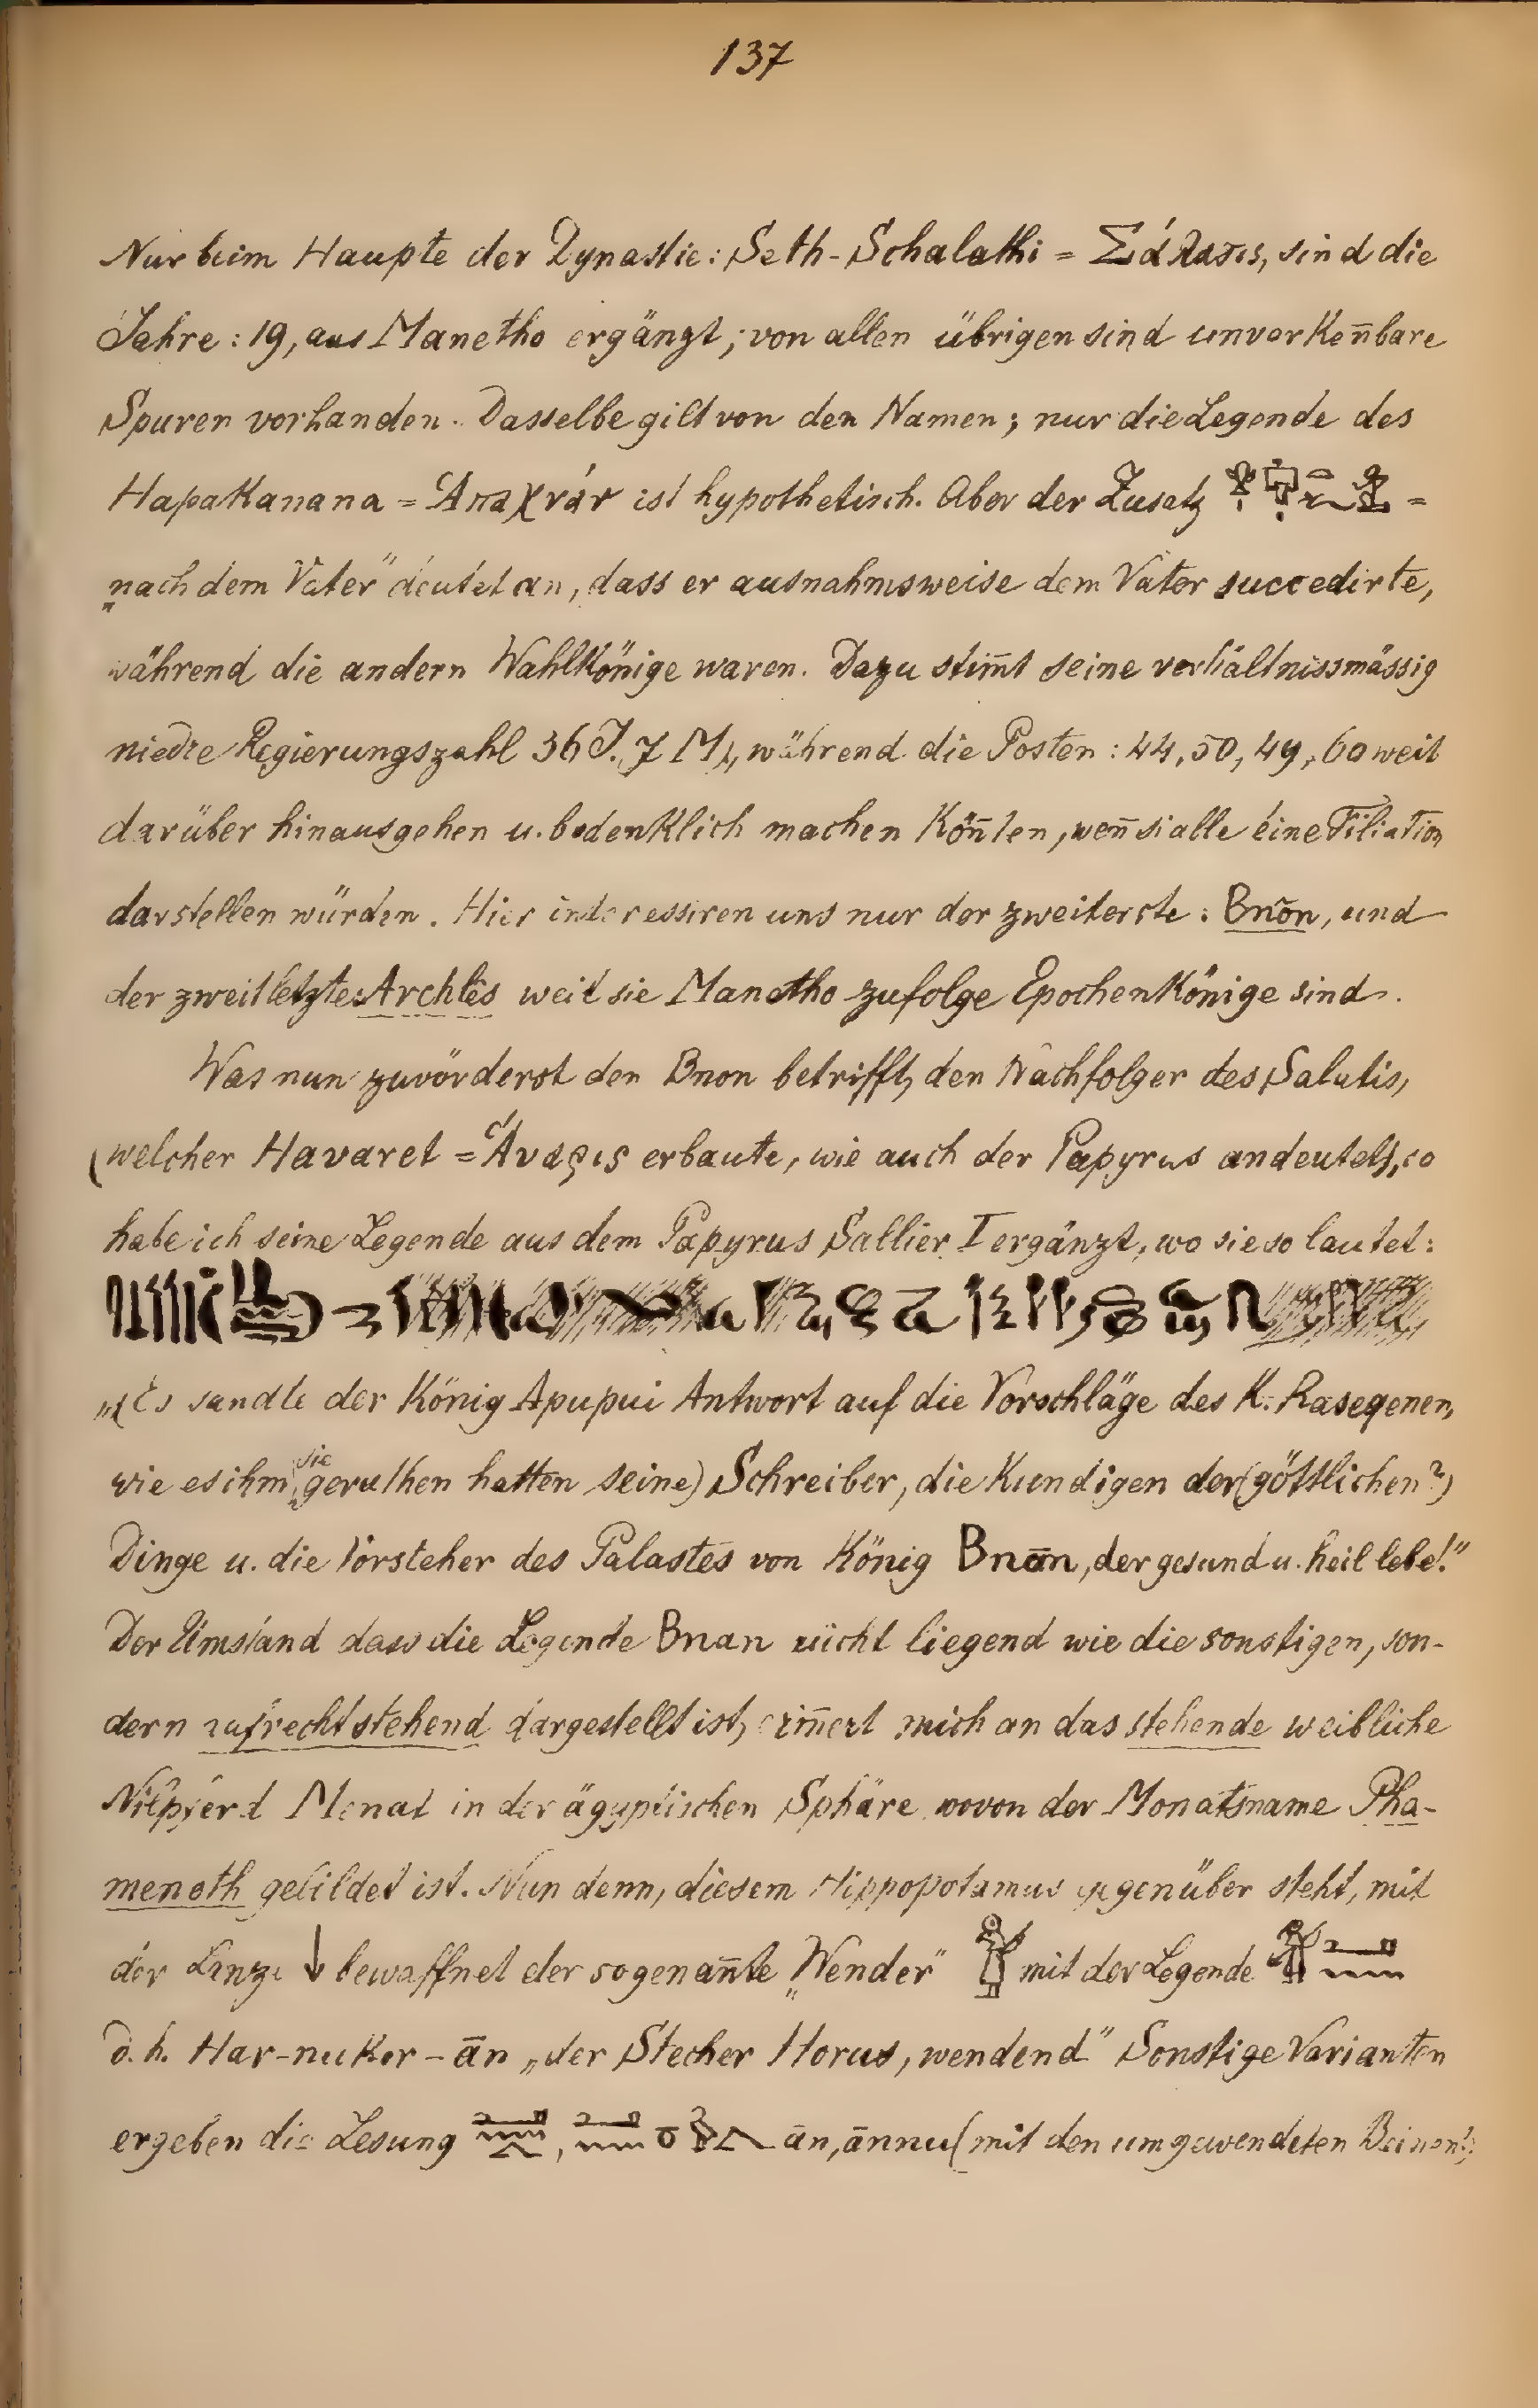 137
Nur beim Haupte der Dynastie: Seth-Schalathi = Σάλατις, sind die
Jahre: 19, aus Manetho ergänzt; von allen übrigen sind unverkeñbare
Spuren vorhanden. Dasselbe gilt von den Namen; nur die Legende des
Hapakanana = Ἀπαχνάν ist hypothetisch. Aber der Zusatz =
„nach dem Vater" deutet an, dass er ausnahmsweise dem Vater succedirte,
während die andern Wahlkönige waren. Dazu stim̄t seine verhältnissmässig
niedre Regierungszahl 36 J. 7 M., während die Posten: 44, 50, 49, 60 weit
darüber hinausgehen u. bedenklich machen köñten, weñ si alle eine Filiation
darstellen würden. Hier interessiren uns nur der zweiterste: Bnōn, und
der zweitletzte: Archlēs weil sie Manetho zufolge Epochenkönige sind.
Was nun zuvörderst den Bnon betrifft, den Nachfolger des Salatis,
(welcher Havaret = Ἄυαρις erbaute, wie auch der Papyrus andeutet), so
habe ich seine Legende aus dem Papyrus Sallier I ergänzt, wo sie so lautet:
„(Es sandte der König Apupui Antwort auf die Vorschläge des K. Raseqenen,
wie es ihm sie gerathen hatten seine) Schreiber, die Kundigen der (göttlichen?)
Dinge u. die Vorsteher des Palastes von König Bnān, der gesund u. heil lebe!"
Der Umstand dass die Legende Bnan nicht liegend wie die sonstigen, son-
dern aufrechtstehend dargestellt ist, eriñert mich an das stehende weibliche
Nilpferd Menat in der ägyptischen Sphäre wovon der Monatsname Pha-
menoth gebildet ist. Nun denn, diesem Hippopotamus gegenüber steht, mit
der Lanze bewaffnet der sogenañte „Wender" mit der Legende
d. h. Har-nuker-ān „der Stecher Horus, wendend" Sonstige Varianten
ergeben die Lesung , ān, ānnu (mit den umgewendeten Beinen!)